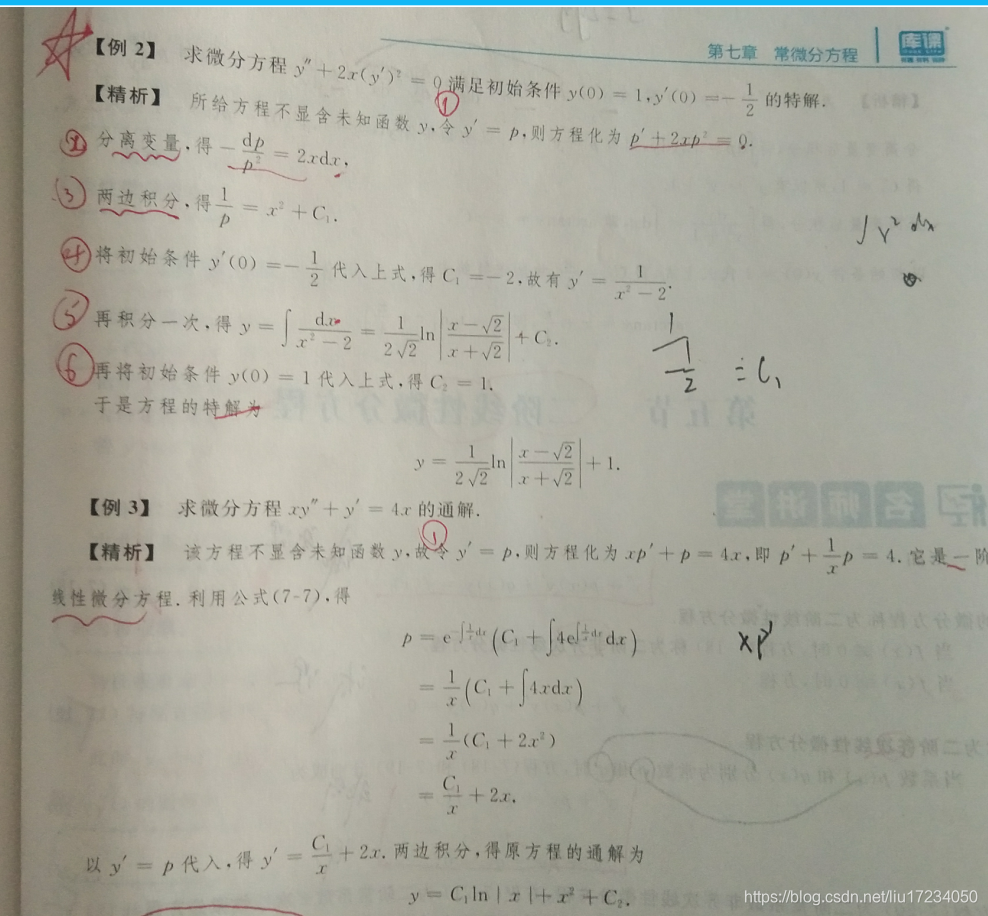 第七章 常微分方程
库课
【例 2】 求微分方程 y″ + 2x(y′)² = 0 满足初始条件 y(0) = 1, y′(0) = −1/2 的特解.
①
【精析】 所给方程不显含未知函数 y,令 y′ = p,则方程化为 p′ + 2xp² = 0.
② 分离变量,得 −dp/p² = 2xdx,
③ 两边积分,得 1/p = x² + C₁.
∫ y² dx
④ 将初始条件 y′(0) = −1/2 代入上式,得 C₁ = −2,故有 y′ = 1/(x² − 2).
⑤ 再积分一次,得 y = ∫ dx/(x² − 2) = 1/(2√2) ln|(x − √2)/(x + √2)| + C₂.
⑥ 再将初始条件 y(0) = 1 代入上式,得 C₂ = 1.
于是方程的特解为
y = 1/(2√2) ln|(x − √2)/(x + √2)| + 1.
名师讲堂
【例 3】 求微分方程 xy″ + y′ = 4x 的通解.
①
【精析】 该方程不显含未知函数 y,故令 y′ = p,则方程化为 xp′ + p = 4x,即 p′ + 1/x p = 4. 它是一阶
线性微分方程. 利用公式(7-7),得
p = e^(−∫1/x dx) (C₁ + ∫4e^(∫1/x dx) dx)
xp′
= 1/x (C₁ + ∫4xdx)
= 1/x (C₁ + 2x²)
= C₁/x + 2x.
以 y′ = p 代入,得 y′ = C₁/x + 2x. 两边积分,得原方程的通解为
y = C₁ln | x | + x² + C₂.
https://blog.csdn.net/liu17234050